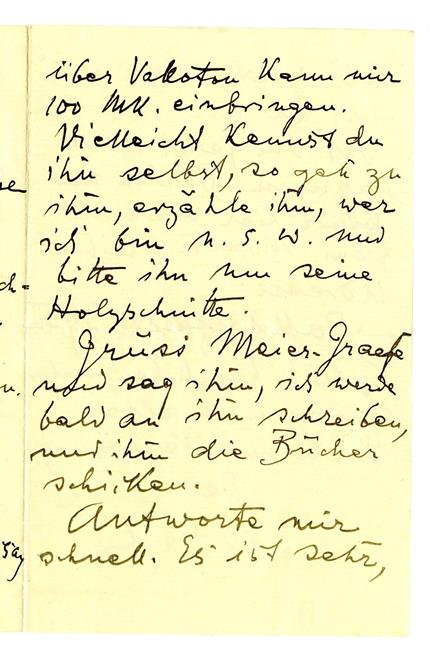 über Valloton kann mir
100 MK. einbringen.
Vielleicht kennst du
ihn selbst, so geh zu
ihm, erzähle ihm, wer
ich bin u. s. w. und
bitte ihn um seine
Holzschnitte.
Grüss Meier-Graefe
und sag ihm, ich werde
bald an ihn schreiben,
und ihm die Bücher
schicken.
Antworte mir
schnell. Es ist sehr,